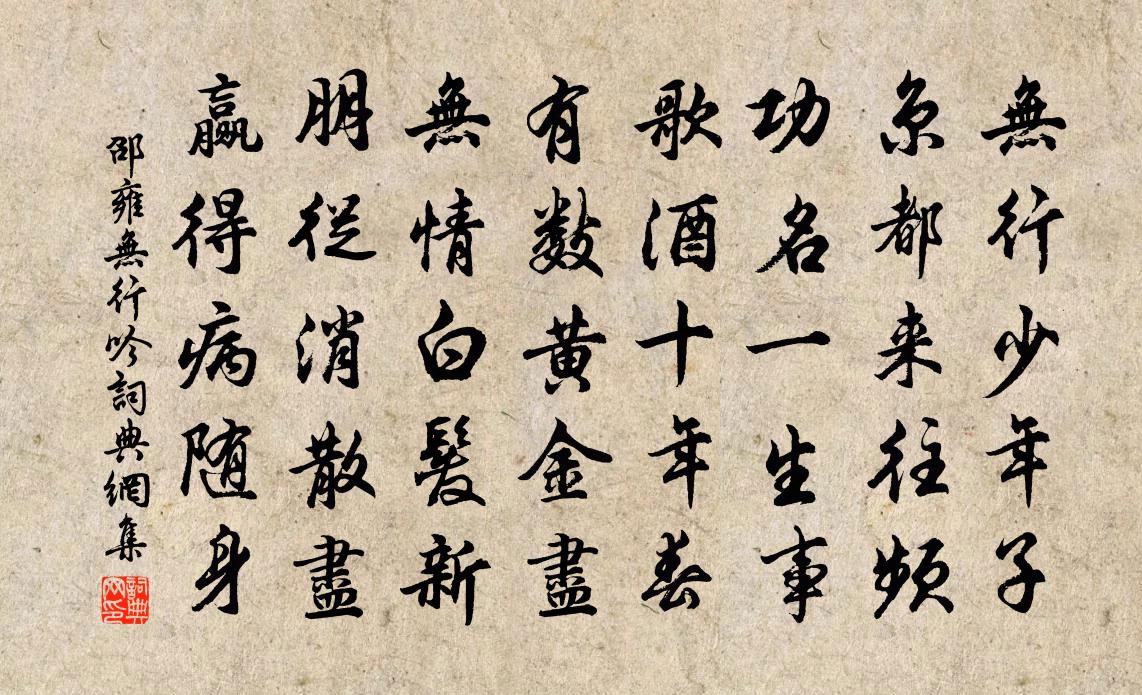 無行少年子
京都来往頻
功名一生事
歌酒十年春
有数黄金盡
無情白髮新
朋從消散盡
贏得病随身
邵雍無行吟詞典網集
詞典網印